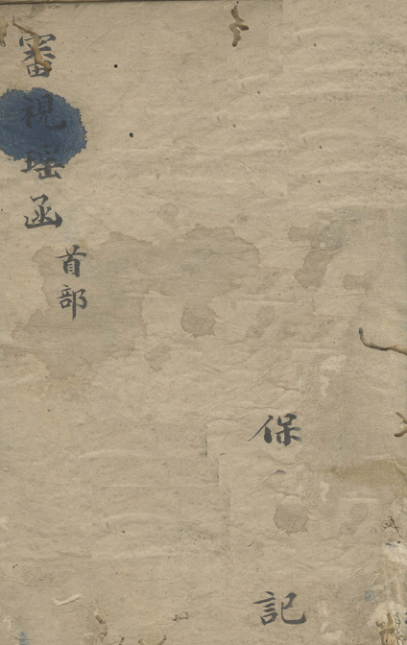 審視瑶函
首部
保
記